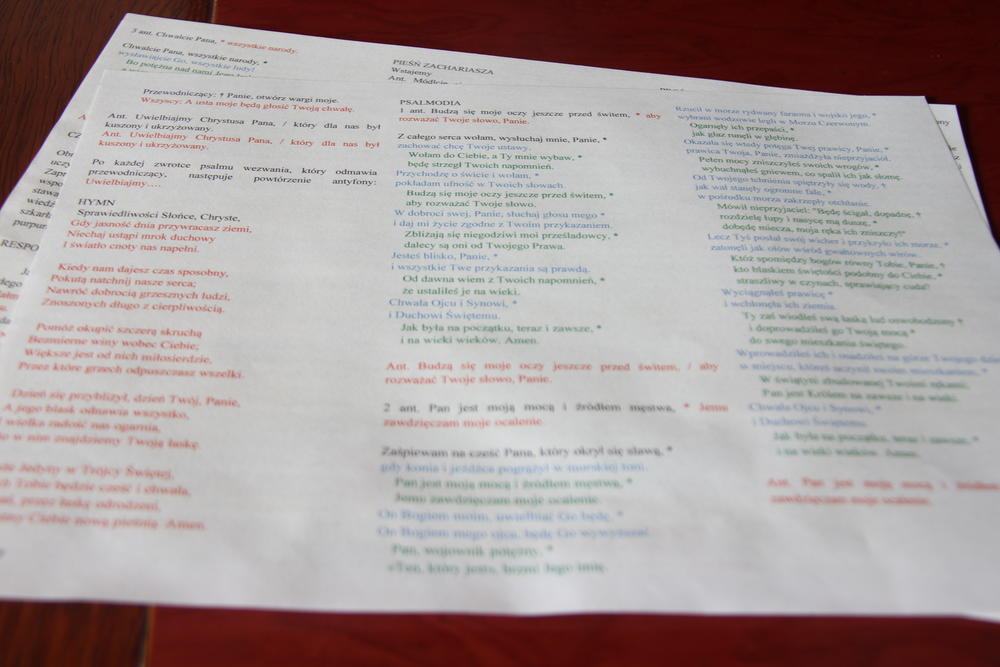 3 ant. Chwalcie Pana, * wszystkie narody.
Chwalcie Pana, wszystkie narody, *
wysławiajcie Go, wszystkie ludy!
Bo potężna nad nami Jego
PIEŚŃ ZACHARIASZA
Wstajemy
Ant.
Przewodniczący: † Panie, otwórz wargi moje.
Wszyscy: A usta moje będą głosić Twoją chwałę.
Ant. Uwielbiajmy Chrystusa Pana, / który dla nas był
kuszony i ukrzyżowany.
Ant. Uwielbiajmy Chrystusa Pana, / który dla nas był
kuszony i ukrzyżowany.
Po każdej zwrotce psalmu wezwania, który odmawia
przewodniczący, następuje powtórzenie antyfony:
Uwielbiajmy….
HYMN
Sprawiedliwości Słońce, Chryste,
Gdy jasność dnia przywracasz ziemi,
Niechaj ustąpi mrok duchowy
I światło cnoty nas napełni.
Kiedy nam dajesz czas sposobny,
Pokutą natchnij nasze serca;
Nawróć dobrocią grzesznych ludzi,
Znoszonych długo z cierpliwością.
Pomóż okupić szczerą skruchą
Bezmierne winy wobec Ciebie;
Większe jest od nich miłosierdzie,
Przez które grzech odpuszczasz wszelki.
Dzień się przybliżył, dzień Twój, Panie,
A jego blask odnawia wszystko,
wielka radość nas ogarnia,
w nim znajdziemy Twoją łaskę.
Jedyny w Trójcy Świętej,
Tobie będzie cześć i chwała,
przez łaskę odrodzeni,
Ciebie nową pieśnią. Amen.
PSALMODIA
1 ant. Budzą się moje oczy jeszcze przed świtem, * aby
rozważać Twoje słowo, Panie.
Z całego serca wołam, wysłuchaj mnie, Panie, *
zachować chcę Twoje ustawy.
Wołam do Ciebie, a Ty mnie wybaw, *
będę strzegł Twoich napomnień.
Przychodzę o świcie i wołam, *
pokładam ufność w Twoich słowach.
Budzą się moje oczy jeszcze przed świtem, *
aby rozważać Twoje słowo.
W dobroci swej, Panie, słuchaj głosu mego *
i daj mi życie zgodne z Twoim przykazaniem.
Zbliżają się niegodziwi moi prześladowcy, *
dalecy są oni od Twojego Prawa.
Jesteś blisko, Panie, *
i wszystkie Twe przykazania są prawdą.
Od dawna wiem z Twoich napomnień, *
że ustaliłeś je na wieki.
Chwała Ojcu i Synowi, *
i Duchowi Świętemu.
Jak była na początku, teraz i zawsze, *
i na wieki wieków. Amen.
Ant. Budzą się moje oczy jeszcze przed świtem, / aby
rozważać Twoje słowo, Panie.
2 ant. Pan jest moją mocą i źródłem męstwa, * Jemu
zawdzięczam moje ocalenie.
Zaśpiewam na cześć Pana, który okrył się sławą, *
gdy konia i jeźdźca pogrążył w morskiej toni.
Pan jest moją mocą i źródłem męstwa, *
Jemu zawdzięczam moje ocalenie.
On Bogiem moim, uwielbiać Go będę, *
On Bogiem mego ojca, będę Go wywyższał.
Pan, wojownik potężny, *
«Ten, który jest», brzmi Jego imię.
Rzucił w morze rydwany faraona i wojsko jego, *
wybrani wodzowie legli w Morzu Czerwonym.
Ogarnęły ich przepaści, *
jak głaz runęli w głębinę.
Okazała się władzy potęga Twej prawicy, Panie, *
prawica Twoja, Panie, zmiażdżyła nieprzyjaciół.
Pełen mocy zniszczyłeś swoich wrogów, *
wybuchnąłeś gniewem, co spalił ich jak słomę.
Od Twojego tchnienia spiętrzyły się wody, †
jak wał stanęły ogromne fale, *
w pośrodku morza zakrzepły otchłanie.
Mówił nieprzyjaciel: "Będę ścigał, dopadnę, †
rozdzielę łupy i nasycę mą duszę, *
dobędę miecza, moja ręka ich zniszczy!"
Lecz Tyś posłał swój wicher i przykryło ich morze, *
zatonęli jak ołów wśród gwałtownych wirów.
Któż spomiędzy bogów równy Tobie, Panie, †
kto blaskiem świętości podobny do Ciebie, *
straszliwy w czynach, sprawiający cuda!
Wyciągnąłeś prawicę *
i wchłonęła ich ziemia.
Ty zaś wiodłeś swą łaską lud oswobodzony †
i doprowadziłeś go Twoją mocą *
do swego mieszkania świętego.
Wprowadziłeś ich i osadziłeś na górze Twojego
w miejscu, któreś uczynił swoim mieszkaniem, *
W świątyni zbudowanej Twoimi rękami.
Pan jest Królem na zawsze i na wieki.
Chwała Ojcu i Synowi, *
i Duchowi Świętemu.
Jak była na początku, teraz i zawsze, *
i na wieki wieków. Amen.
Ant. Pan jest moją mocą i
zawdzięczam moje ocalenie.